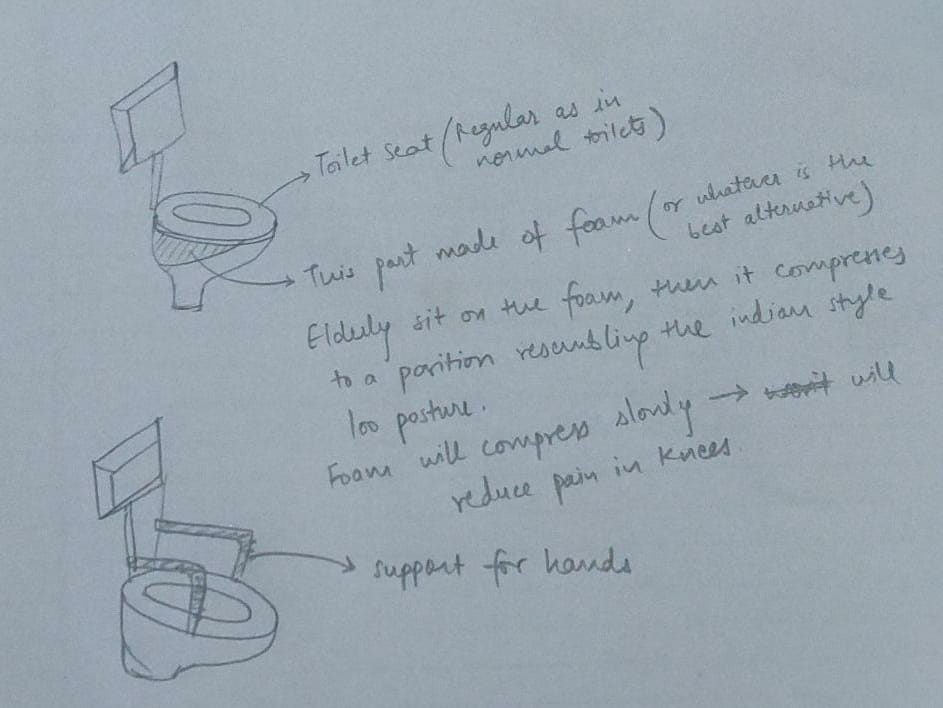 Toilet seat (Regular as in
normal toilets)
This part made of foam (or whatever is the
best alternative)
Elderly sit on the foam, then it compresses
to a position resembling the indian style
loo posture.
Foam will compress slowly → will
reduce pain in knees.
support for hands